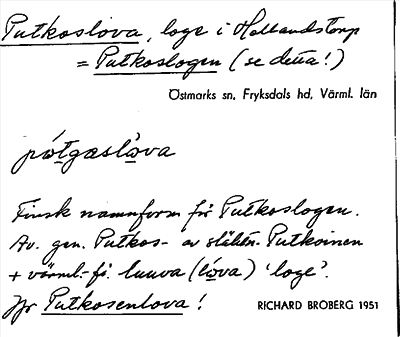 Putkoslova, loge i Hallandstorp
= Putkoslogen (se detta!)
Östmarks sn, Fryksdals hd, Värml. län
pótgaslòva
Finsk namnform för Putkoslogen.
Av. gen. Putkos- av släktn. Putkoinen
+ värml.-fi. luuva (lòva) 'loge'.
Jfr Putkosenlova!
RICHARD BROBERG 1951